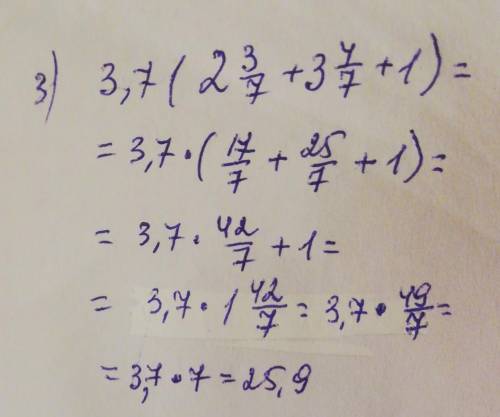 3) 3,7 ( 2 3/7 + 3 4/7 + 1 ) =
= 3,7 • ( 17/7 + 25/7 + 1 ) =
= 3,7 • 42/7 + 1 =
= 3,7 • 1 42/7 = 3,7 • 49/7 =
= 3,7 • 7 = 25,9